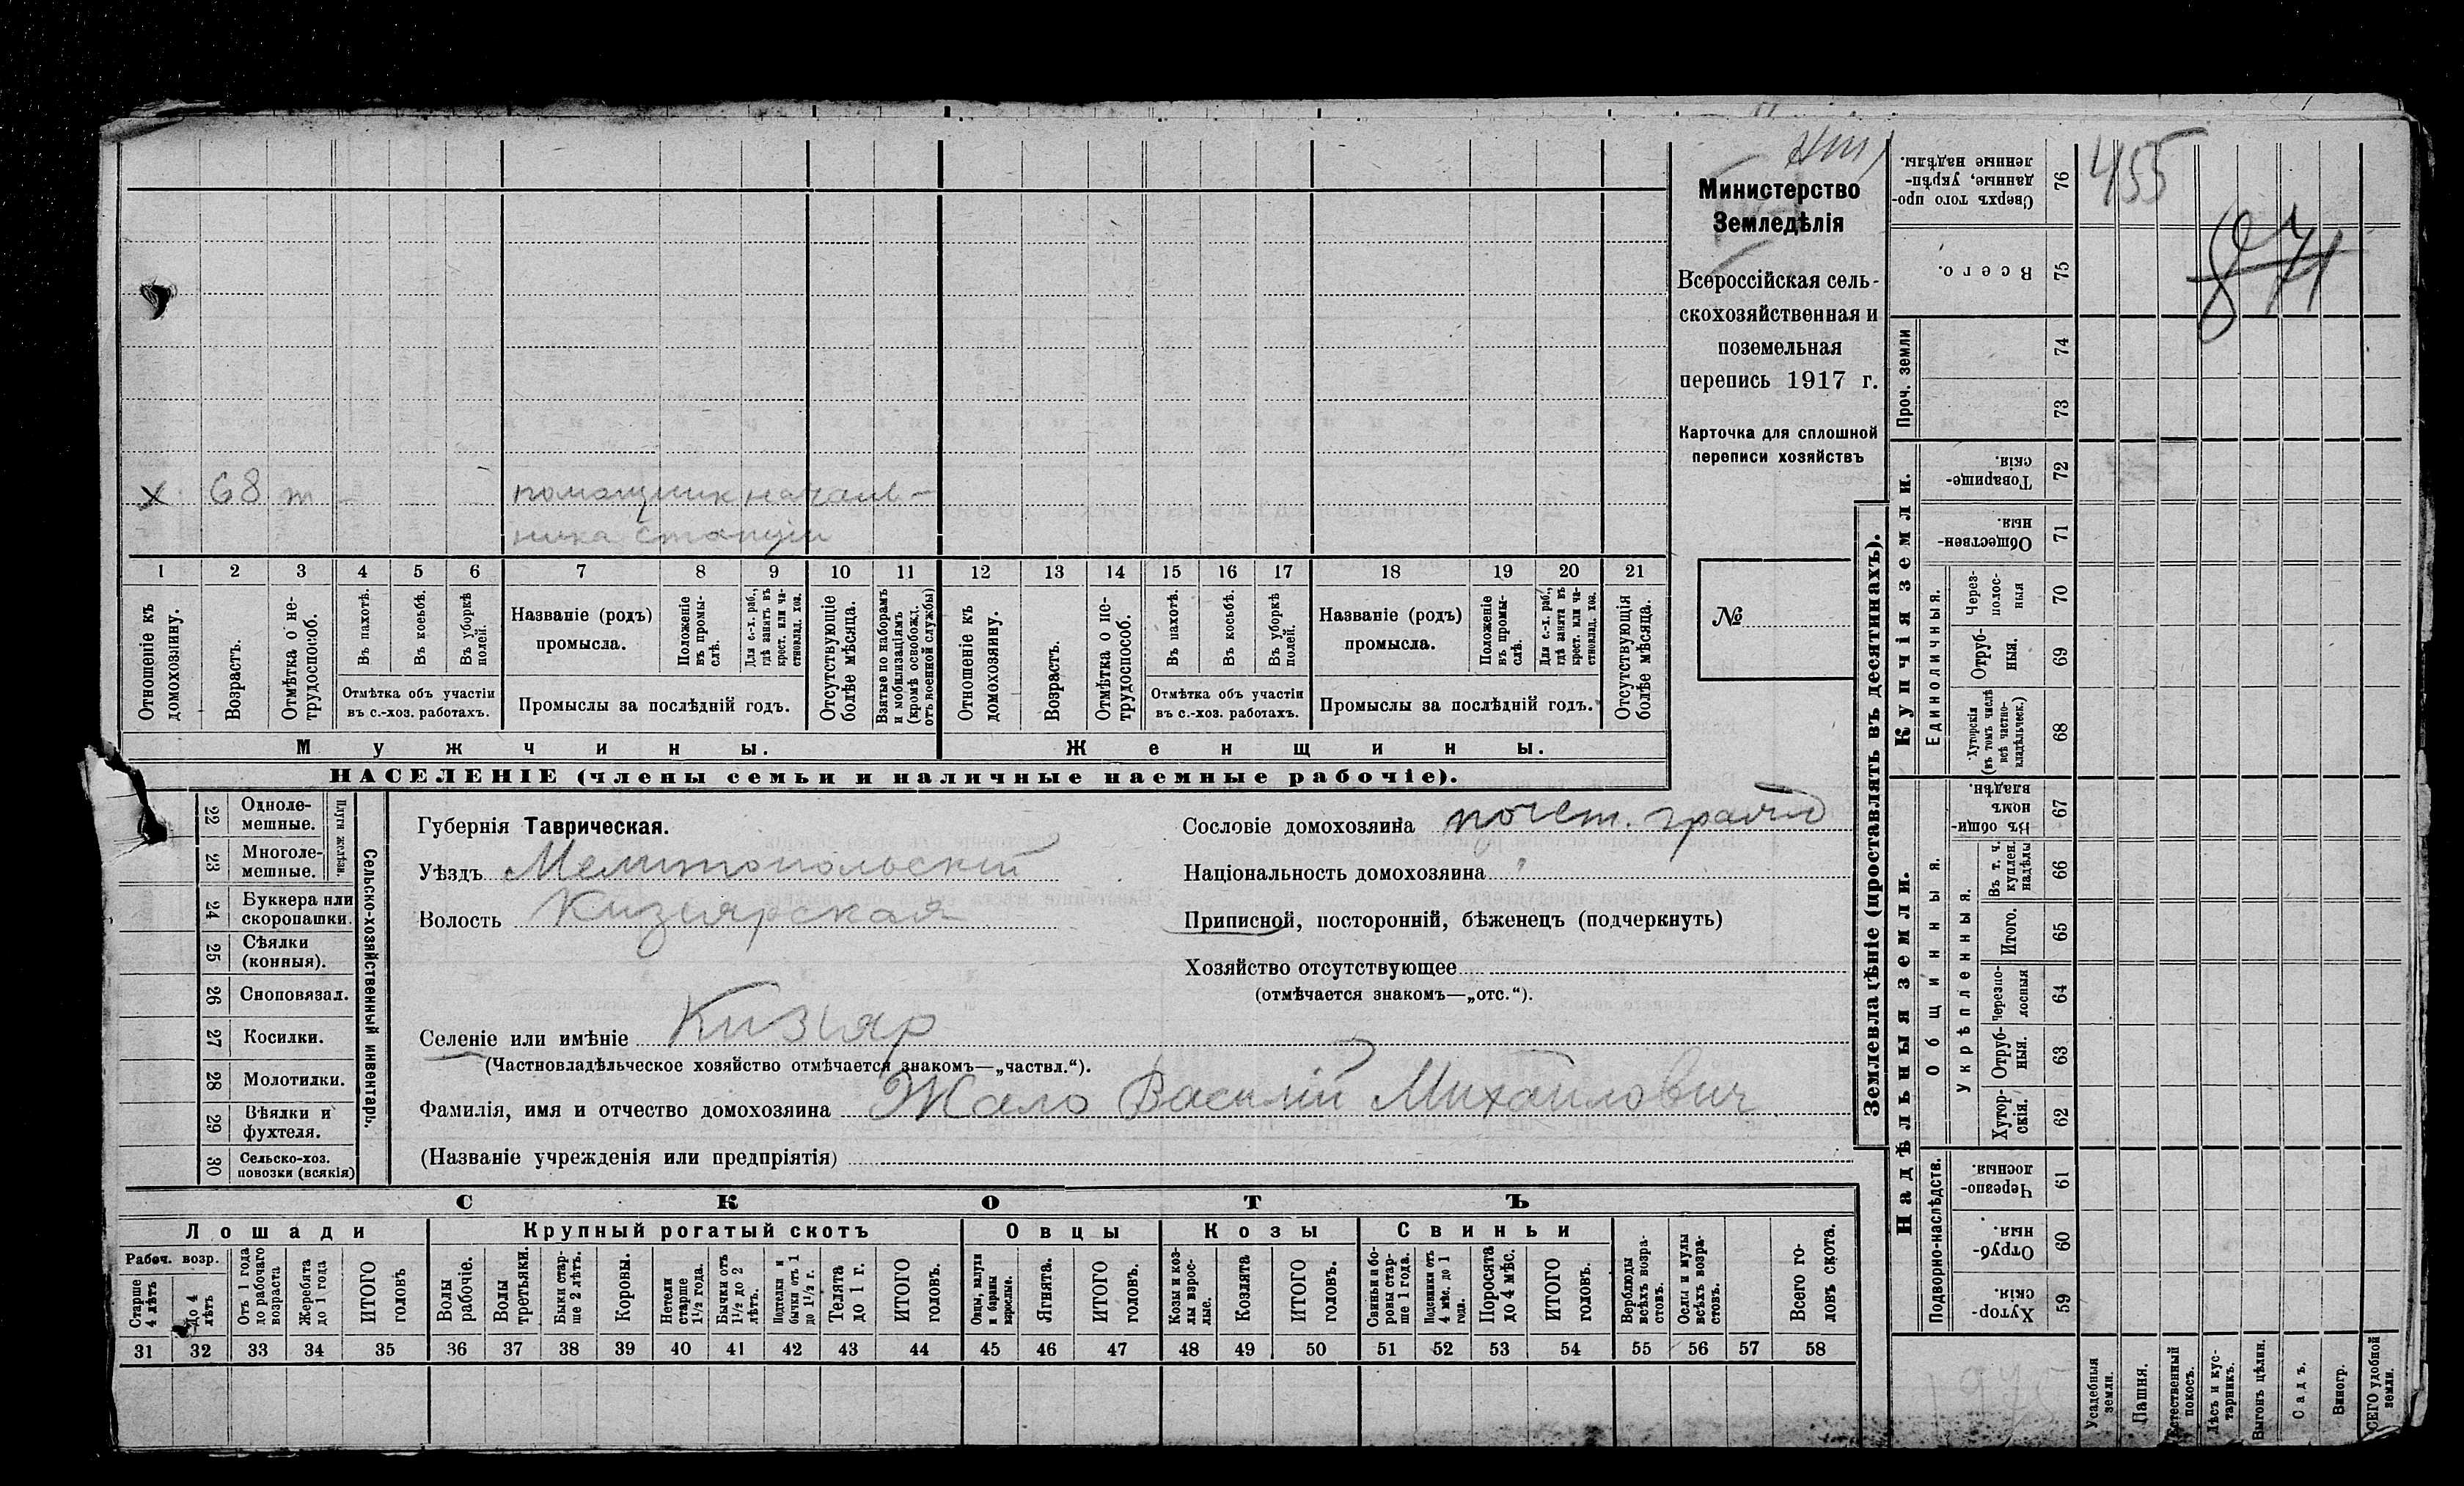 Министерство
Земледѣлія
Всероссійская сель-
скохозяйственная и
поземельная
перепись 1917 г.
Карточка для сплошной
переписи хозяйствъ
№
х 68 т помощник началь-
ника станціи
1 2 3 4 5 6 7 8 9 10 11 12 13 14 15 16 17 18 19 20 21
Отношеніе къ домохозяину.
Возрастъ.
Отмѣтка о не-трудоспособ.
Въ пахотѣ.
Въ косьбѣ.
Въ уборкѣ полей.
Отмѣтка объ участіи
въ с.-хоз. работахъ.
Названіе (родъ)
промысла.
Положеніе въ промы-слѣ.
Для с.-х. раб., гдѣ занятъ въ крест. или ча-стновлад. хоз.
Промыслы за послѣдній годъ.
Отсутствующіе болѣе мѣсяца.
Взятые по наборамъ и мобилизаціямъ (кромѣ освобожд. отъ военной службы)
Отношеніе къ домохозяину.
Возрастъ.
Отмѣтка о не-трудоспособ.
Въ пахотѣ.
Въ косьбѣ.
Въ уборкѣ полей.
Отмѣтка объ участіи
въ с.-хоз. работахъ.
Названіе (родъ)
промысла.
Положеніе въ промы-слѣ.
Для с.-х. раб., гдѣ занята въ крест. или ча-стновлад. хоз.
Промыслы за послѣдній годъ.
Отсутствующія болѣе мѣсяца.
Мужчины.
Женщины.
НАСЕЛЕНІЕ (члены семьи и наличные наемные рабочіе).
Сельско-хозяйственный инвентарь.
Плуги желѣзн.
22 Одноле-мешные.
23 Многоле-мешные.
24 Буккера или скоропашки.
25 Сѣялки (конныя).
26 Сноповязал.
27 Косилки.
28 Молотилки.
29 Вѣялки и фухтеля.
30 Сельско-хоз. повозки (всякія)
Губернія Таврическая.
Уѣздъ Мелитопольскій
Волость Кизіярская
Селеніе или имѣніе Кизіяр
(Частновладѣльческое хозяйство отмѣчается знакомъ—„частвл.“).
Фамилія, имя и отчество домохозяина Жало Василій Михайлович
(Названіе учрежденія или предпріятія)
Сословіе домохозяина почет. гражд
Національность домохозяина "
Приписной, посторонній, бѣженецъ (подчеркнуть)
Хозяйство отсутствующее
(отмѣчается знакомъ—„отс.“).
СКОТЪ
Лошади
Крупный рогатый скотъ
Овцы
Козы
Свиньи
Рабоч. возр.
Старше 4 лѣтъ
До 4 лѣтъ
Отъ 1 года до рабочаго возраста
Жеребята до 1 года
ИТОГО головъ
Волы рабочіе.
Волы третьяки.
Быки стар-ше 2 лѣтъ.
Коровы.
Нетели старше 1½ года.
Бычки отъ 1½ до 2 лѣтъ.
Подтелки и бычки отъ 1 до 1½ г.
Телята до 1 г.
ИТОГО головъ.
Овцы, валухи и бараны взрослые.
Ягнята.
ИТОГО головъ.
Козы и коз-лы взрос-лые.
Козлята
ИТОГО головъ.
Свиньи и бо-ровы стар-ше 1 года.
Подсвинки отъ 4 мѣс. до 1 года.
Поросята до 4 мѣс.
ИТОГО головъ.
Верблюды всѣхъ возра-стовъ.
Ослы и мулы всѣхъ возра-стовъ.
Всего го-ловъ скота.
31 32 33 34 35 36 37 38 39 40 41 42 43 44 45 46 47 48 49 50 51 52 53 54 55 56 57 58
Землевладѣніе (проставлять въ десятинахъ).
Сверхъ того про-данные, укрѣп-ленные надѣлы. 76
455
Всего. 75
871
Проч. земли
74
73
Купчія земли.
Товарище-скія. 72
Обществен-ныя. 71
Единоличныя.
Через-полос-ныя 70
Отруб-ныя. 69
Хуторскія (въ томъ числѣ всѣ частно-владѣльческ.) 68
Надѣльныя земли.
Общинныя.
Въ общин-номъ владѣн. 67
Укрѣпленныя.
Въ т. ч. куплен. надѣлы 66
Итого. 65
Черезпо-лосныя 64
Отруб-ныя. 63
Хутор-скія. 62
Подворно-наслѣдств.
Черезпо-лосныя. 61
Отруб-ныя. 60
Хутор-скія. 59
Усадебныя земли.
Пашня.
Естественный покосъ.
Лѣсъ и кус-тарникъ.
Выгонъ цѣлин.
Садъ.
Виногр.
ВСЕГО удобной земли.